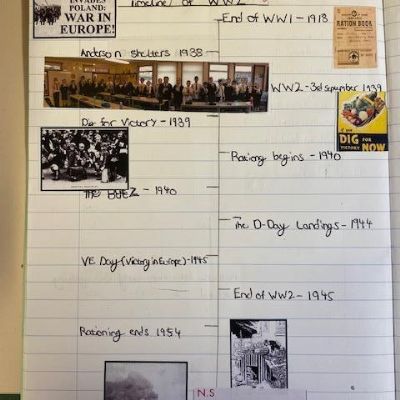 INVADES
POLAND:
WAR IN
EUROPE!
Timeline of WW2
End of WW1 - 1918
RATION BOOK
Anderson shelters 1938
WW2 - 3rd september 1939
Dig for Victory - 1939
DIG FOR
VICTORY NOW
Rationing begins - 1940
The BLITZ - 1940
The D-Day Landings - 1944
VE Day (Victory in Europe) - 1945
End of WW2 - 1945
Rationing ends 1954
N.S